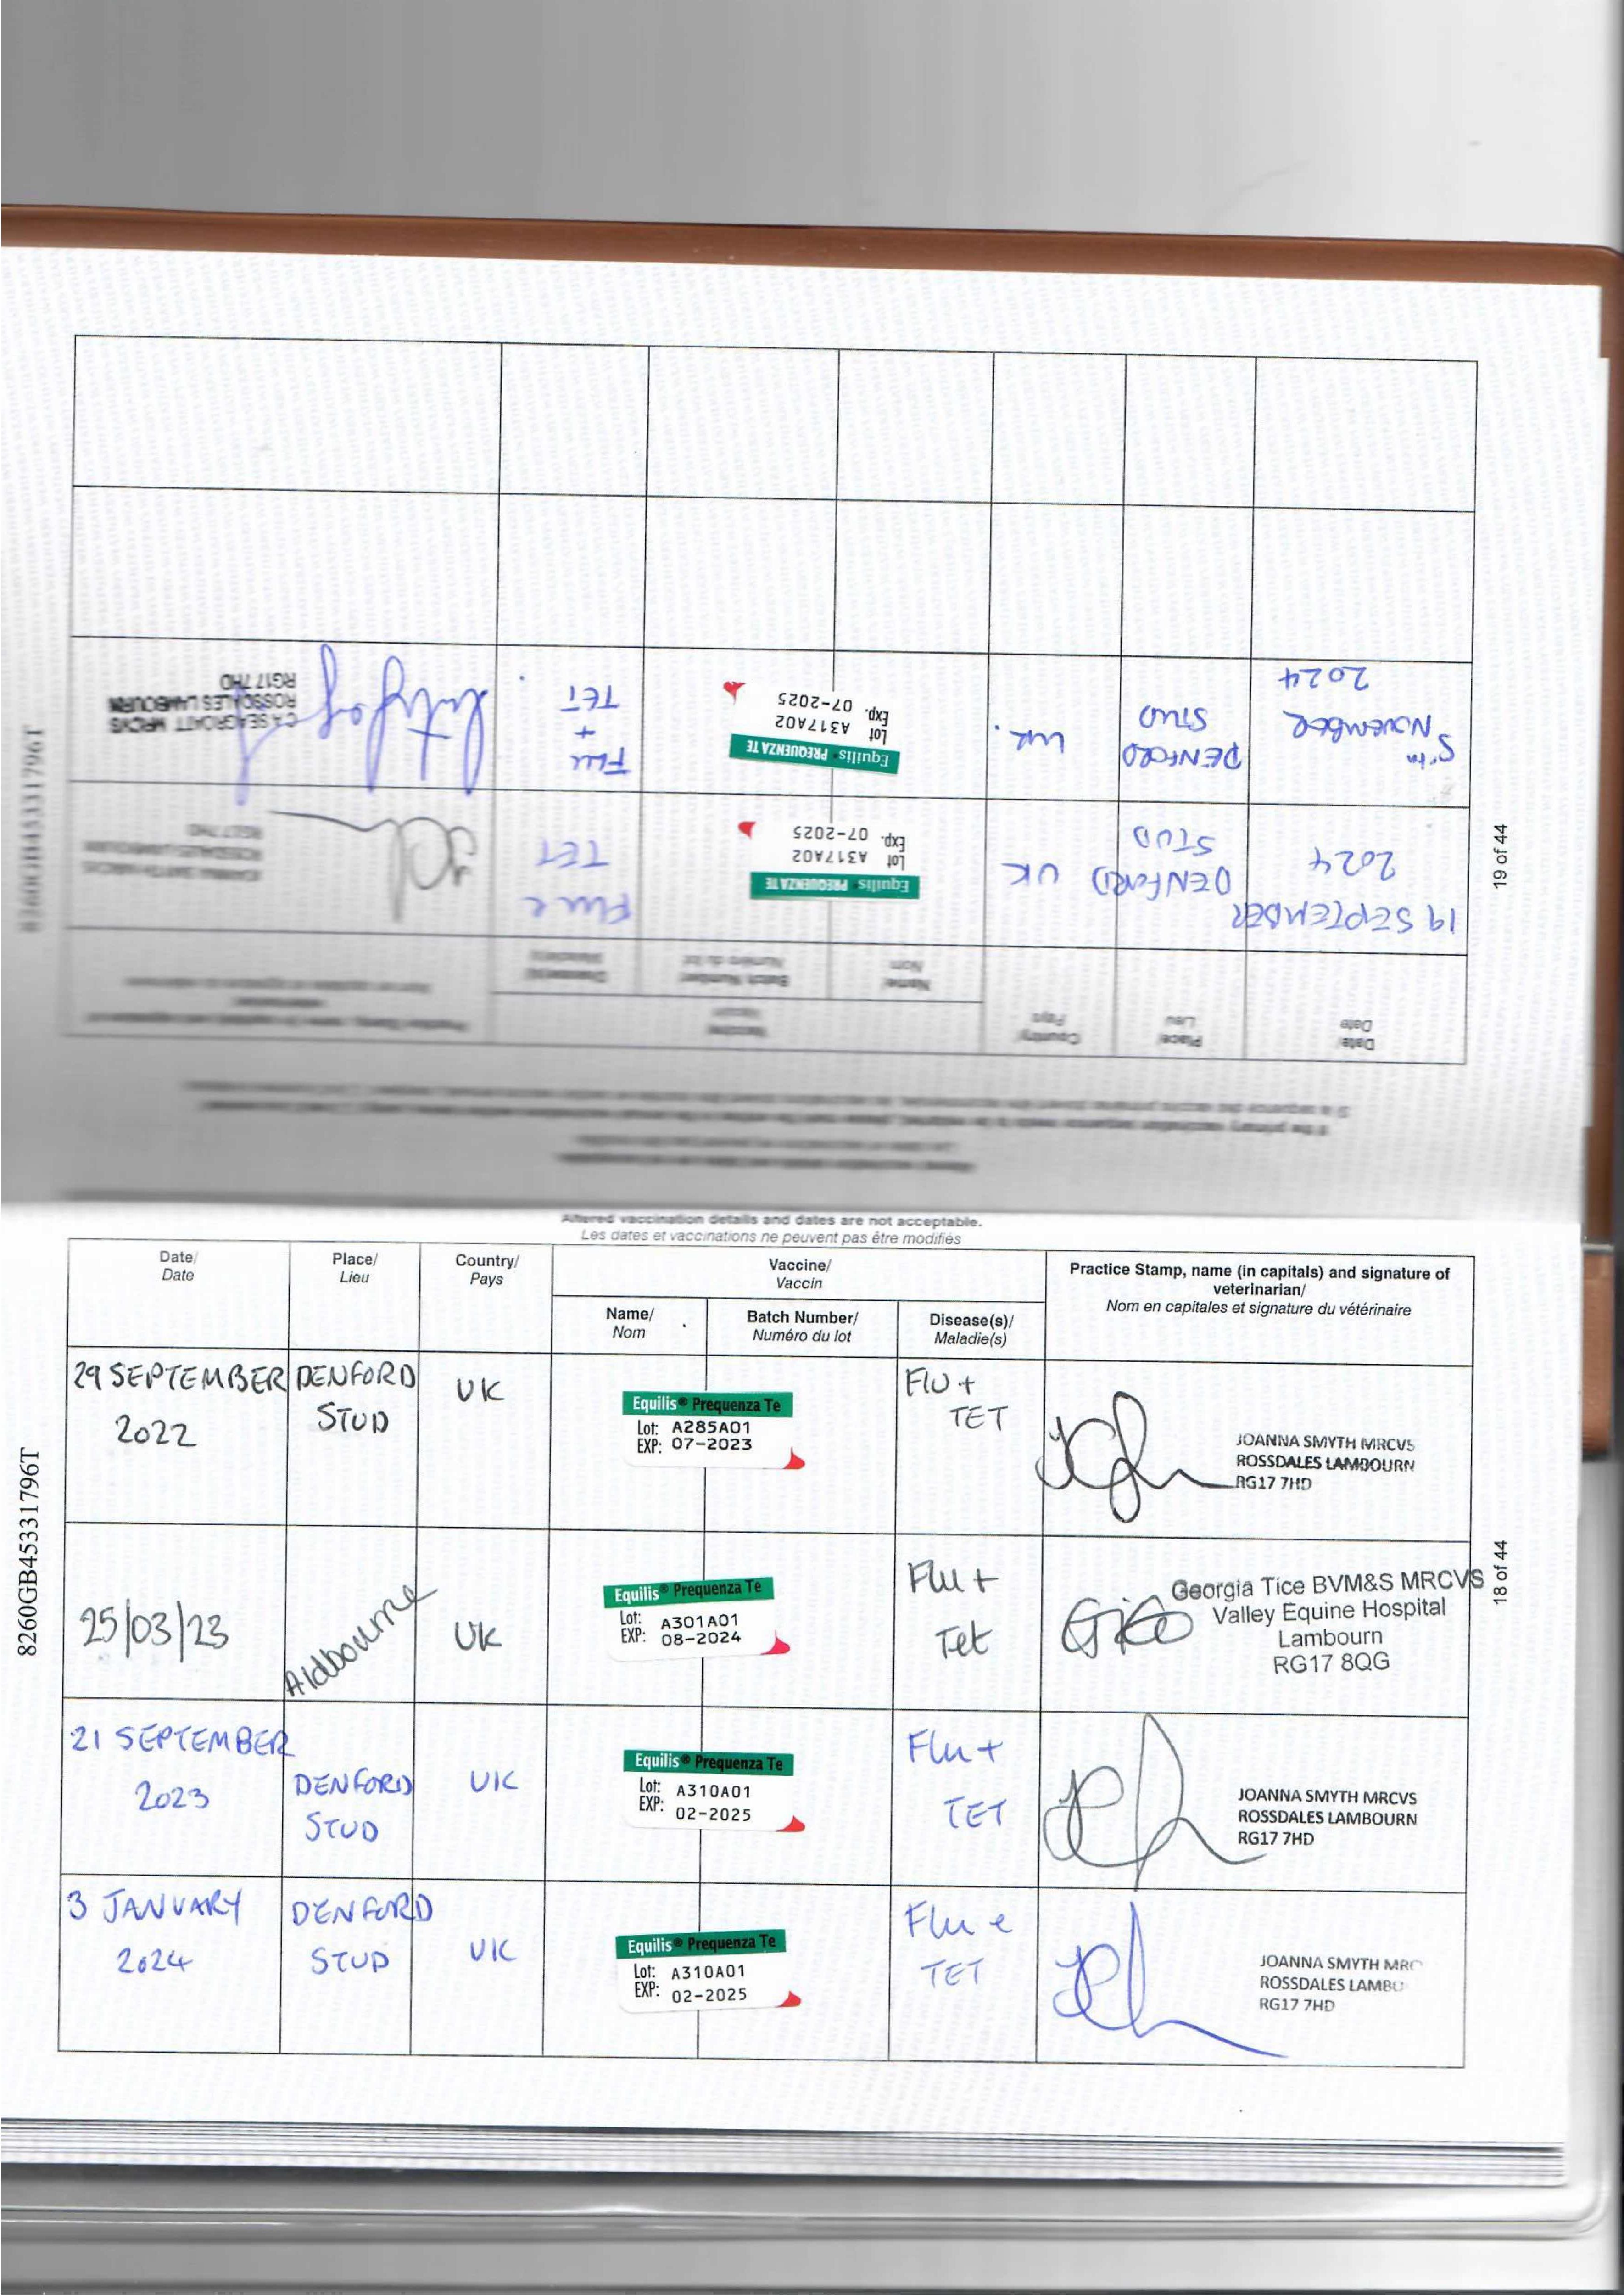 Altered vaccination details and dates are not acceptable.
Les dates et vaccinations ne peuvent pas être modifiés
Date/
Date
Place/
Lieu
Country/
Pays
Vaccine/
Vaccin
Name/
Nom
Batch Number/
Numéro du lot
Disease(s)/
Maladie(s)
Practice Stamp, name (in capitals) and signature of
veterinarian/
Nom en capitales et signature du vétérinaire
29 SEPTEMBER
2022
DENFORD
STUD
UK
Equilis® Prequenza Te
Lot: A285A01
EXP: 07-2023
Flu +
TET
JOANNA SMYTH MRCVS
ROSSDALES LAMBOURN
RG17 7HD
25/03/23
Aldbourne
UK
Equilis® Prequenza Te
Lot: A301A01
EXP: 08-2024
Flu +
Tet
Georgia Tice BVM&S MRCVS
Valley Equine Hospital
Lambourn
RG17 8QG
21 SEPTEMBER
2023
DENFORD
STUD
UK
Equilis® Prequenza Te
Lot: A310A01
EXP: 02-2025
Flu +
TET
JOANNA SMYTH MRCVS
ROSSDALES LAMBOURN
RG17 7HD
3 JANUARY
2024
DENFORD
STUD
UK
Equilis® Prequenza Te
Lot: A310A01
EXP: 02-2025
Flu e
TET
JOANNA SMYTH MRC
ROSSDALES LAMBO
RG17 7HD
8260GB45331796T
18 of 44
Date/
Date
Place/
Lieu
Country/
Pays
Vaccine/
Vaccin
Name/
Nom
Batch Number/
Numéro du lot
Disease(s)/
Maladie(s)
19 SEPTEMBER
2024
DENFORD
STUD
UK
Equilis PREQUENZA TE
Lot A317A02
Exp. 07-2025
Flu e
TET
JOANNA SMYTH MRCVS
ROSSDALES LAMBOURN
RG17 7HD
5th
NOVEMBER
2024
DENFORD
STUD
UK.
Equilis PREQUENZA TE
Lot A317A02
Exp. 07-2025
Flu
+
TET
CA SEAGROATT MRCVS
ROSSDALES LAMBOURN
RG17 7HD
8260GB45331796T
19 of 44